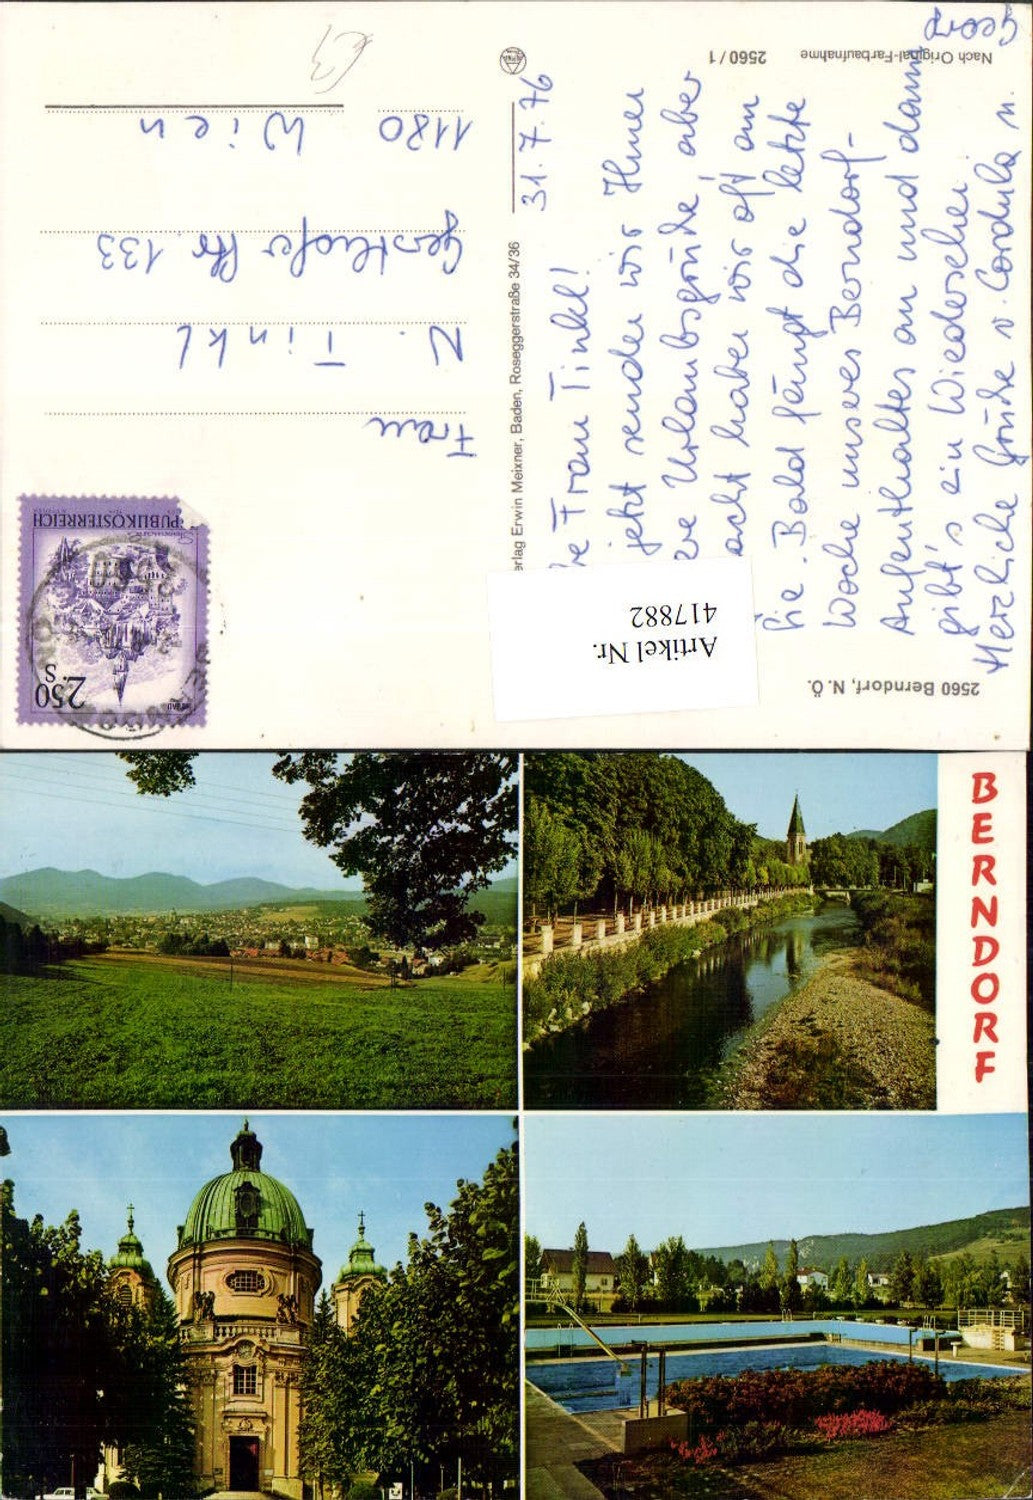 2560 Berndorf, N. Ö.
Artikel Nr.
417882
31. 7. 76
Frau Tinkl!
jetzt senden wir Ihnen
Urlaubsgrüße, aber
haben wir oft an
Sie. Bald fängt die letzte
Woche unseres Berndorf-
Aufenthaltes an und dann
gibt's ein Wiedersehen.
Herzliche Grüße v. Cordula u.
Georg
Nach Original-Farbaufnahme
2560/1
erlag Erwin Meixner, Baden, Roseggerstraße 34/36
2.50
S
REPUBLIK ÖSTERREICH
Frau
N. Tinkl
Gersthofer Str. 133
1180 Wien
€3
BERNDORF